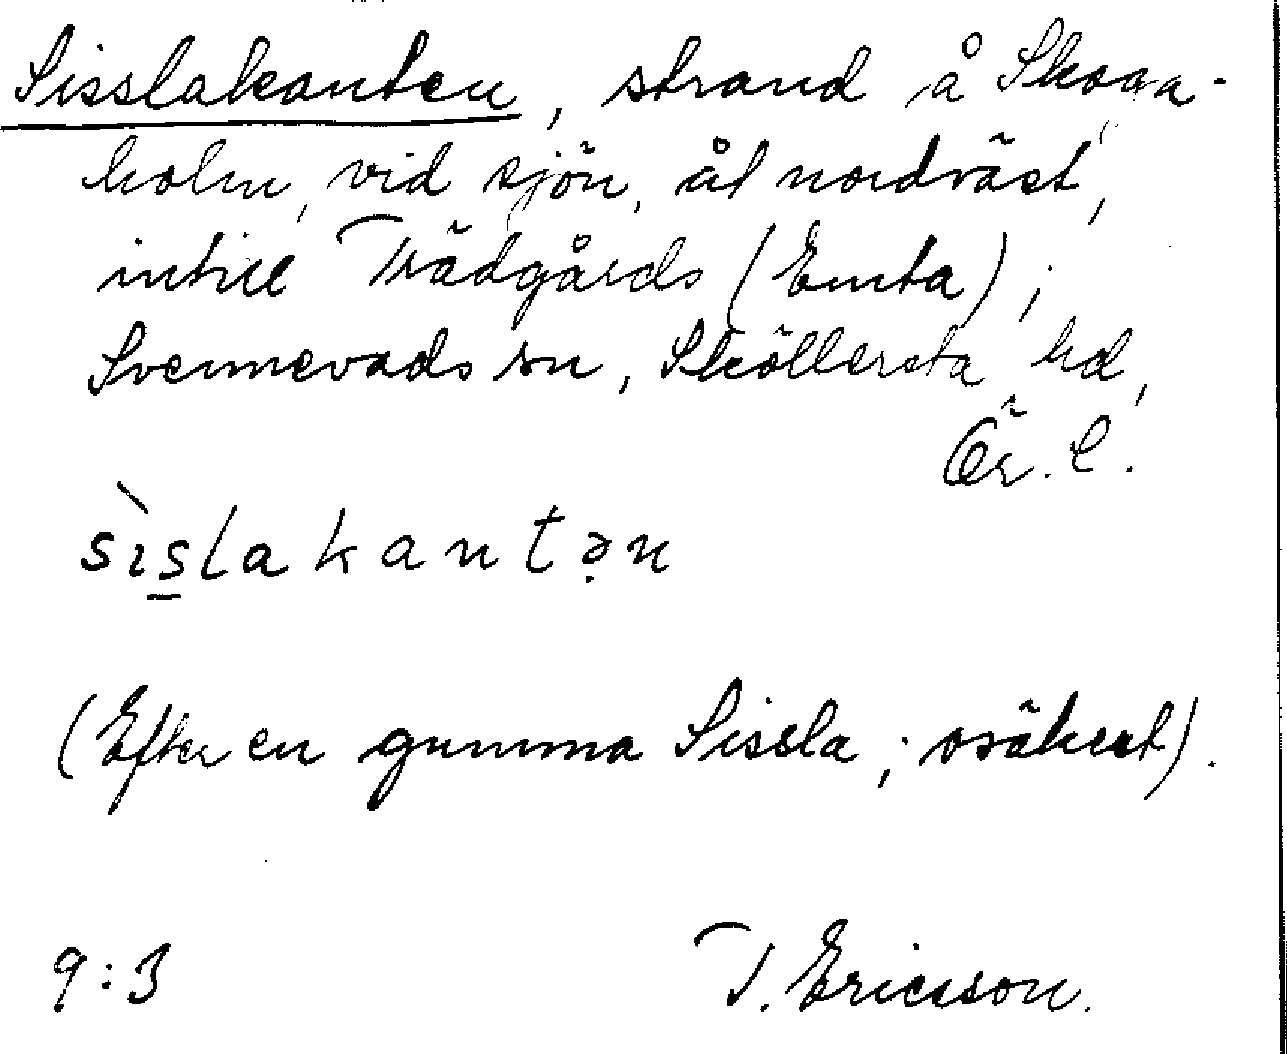 Sisslakanten, strand å Skoga-
holm, vid sjön, åt nordväst,
intill Trädgårds (Emta);
Svennevads sn, Sköllersta hd,
Ör. l.
sìs̲lakantə̣n
(Efter en gumma Sissla; osäkert).
9:3 T. Ericsson.